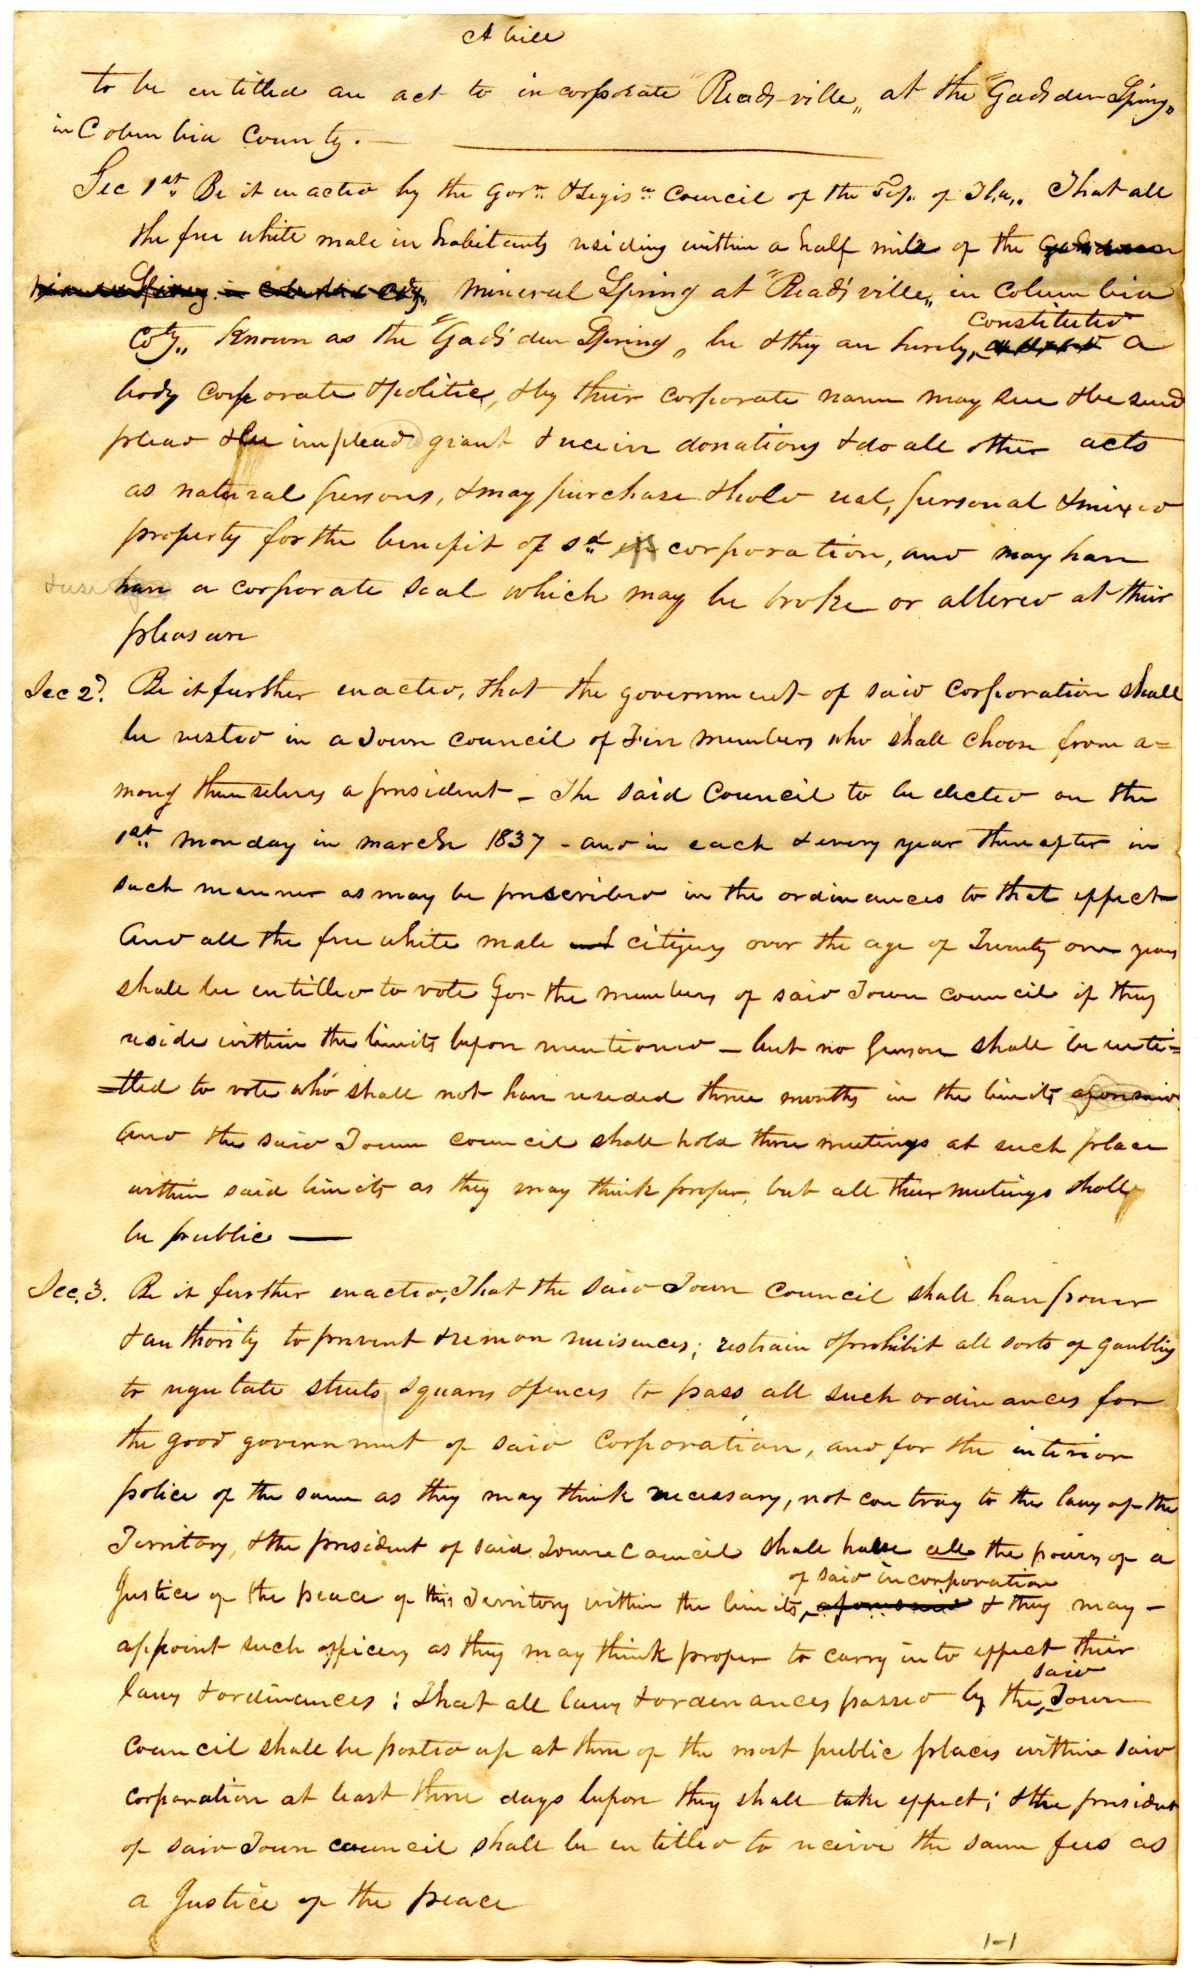 A bill
to be entitled an act to incorporate "Reads-ville" at the "Gadsden Spring"
in Columbia County. —
Sec 1st. Be it enacted by the Govr. & Legisve. Council of the Ter. of Fla., That all
the free white male inhabitants residing within a half mile of the Gadsden
Spring in Columbia Cty, mineral Spring at "Read'sville" in Columbia
Coty., Known as the "Gads'den Spring" be & they are hereby
constituted
a
body corporate & politic, & by their corporate name may sue & be sued
plead & be implead grant & receive donations & do all other acts
as natural persons, & may purchase & hold real, personal & mixed
property for the benefit of sd. corporation, and may have
& use have a corporate seal which may be broke or altered at their
pleasure
Sec 2d. Be it further enacted, that the government of said Corporation shall
be vested in a Town council of Five members who shall choose from a=
mong themselves a president - The said Council to be elected on the
1st. monday in march 1837 - and in each & every year thereafter in
such manner as may be prescribed in the ordinances to that effect
And all the free white male citizens over the age of Twenty one years
shall be entitled to vote for the members of said Town council if they
reside within the limits before mentioned - but no person shall be enti=
=tled to vote who shall not have resided three months in the limits aforesaid
And the said Town council shall hold three meetings at such place
within said limits as they may think proper, but all their meetings shall
be public —
Sec. 3. Be it further enacted, That the said Town Council shall have power
& authority to prevent & remove nuisences; restrain & prohibit all sorts of gambling
to regulate streets squares & fences to pass all such ordinances for
the good government of said Corporation, and for the interior
police of the same as they may think necessary, not contray to the laws of the
Territory, & the president of said Town Council shall have all the powers of a
of said incorporation
Justice of the peace of this Territory within the limits, aforesaid & they may -
appoint such officers as they may think proper to carry into effect their
said
laws & ordinances; That all laws & ordenances passed by the Town
Council shall be posted up at three of the most public places within said
corporation at least three days before they shall take effect; & the president
of said Town council shall be entitled to receive the same fees as
a Justice of the peace
1-1